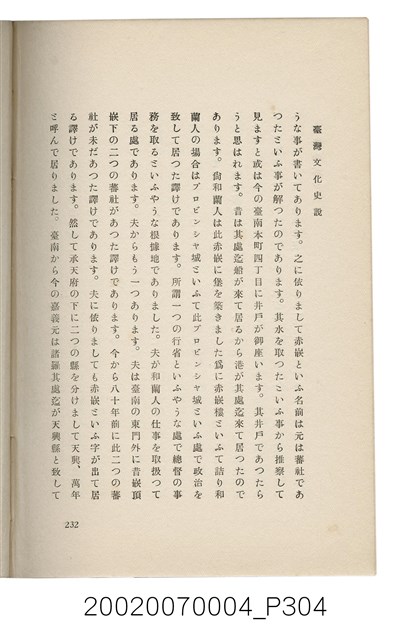 臺灣文化史說
うな事が書いてあります。之に依りまして赤嵌といふ名前は元は蕃社であ
つたといふ事が解つたのであります。其水を取つたといふ事から推察して
見ますと或は今の臺南本町四丁目に井戸が御座います。其井戸であつたら
うと思はれます。昔は其處迄船が來て居るから港が其處迄來て居つたので
あります。尙和蘭人は此赤嵌に堡を築きました爲に赤嵌樓といふて詰り和
蘭人の場合はプロビンシヤ城といふて此プロビンシヤ城といふ處で政治を
致して居つた譯けであります。所謂一つの行省といふやうな處で總督の事
務を取るといふやうな根據地でありました。夫が和蘭人の仕事を取扱つて
居る處であります。夫からもう一つあります。夫は臺南の東門外に昔嵌頂
嵌下の二つの蕃社があつた譯けであります。今から八十年前に此二つの蕃
社が未だあつた譯けであります。夫に依りましても赤嵌といふ字が出て居
る譯けであります。然して承天府の下に二つの縣を分けまして天興、萬年
と呼んで居りました。臺南から今の嘉義元は諸羅其處迄が天興縣と致して
232
20020070004_P304